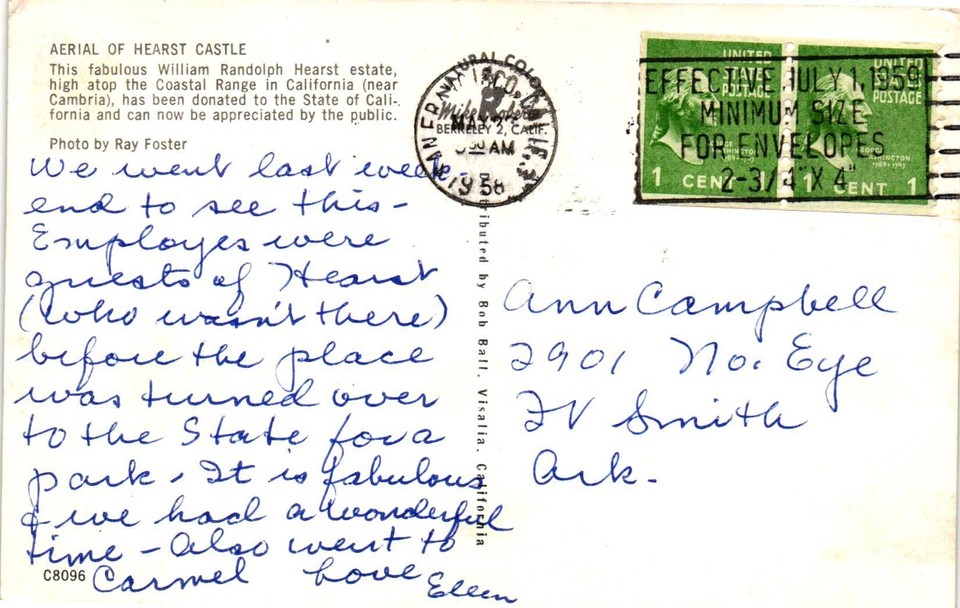 AERIAL OF HEARST CASTLE
This fabulous William Randolph Hearst estate,
high atop the Coastal Range in California (near
Cambria), has been donated to the State of Cali-
fornia and can now be appreciated by the public.
Photo by Ray Foster
We went last week-
end to see this -
Employes were
guests of Hearst
(who wasn't there)
before the place
was turned over
to the State for a
park. It is fabulous
& we had a wonderful
time - Also went to
Carmel Love Ellen
C8096
NATURAL COLOR
BERKELEY 2, CALIF.
AM
1958
Distributed by Bob Ball, Visalia, California
UNITED
STATES
POSTAGE
1 CENT
UNITED
STATES
POSTAGE
1 CENT 1
EFFECTIVE JULY 1, 1959
MINIMUM SIZE
FOR ENVELOPES
2-3/4" X 4"
Ann Campbell
2901 No. Eye
Ft Smith
Ark.